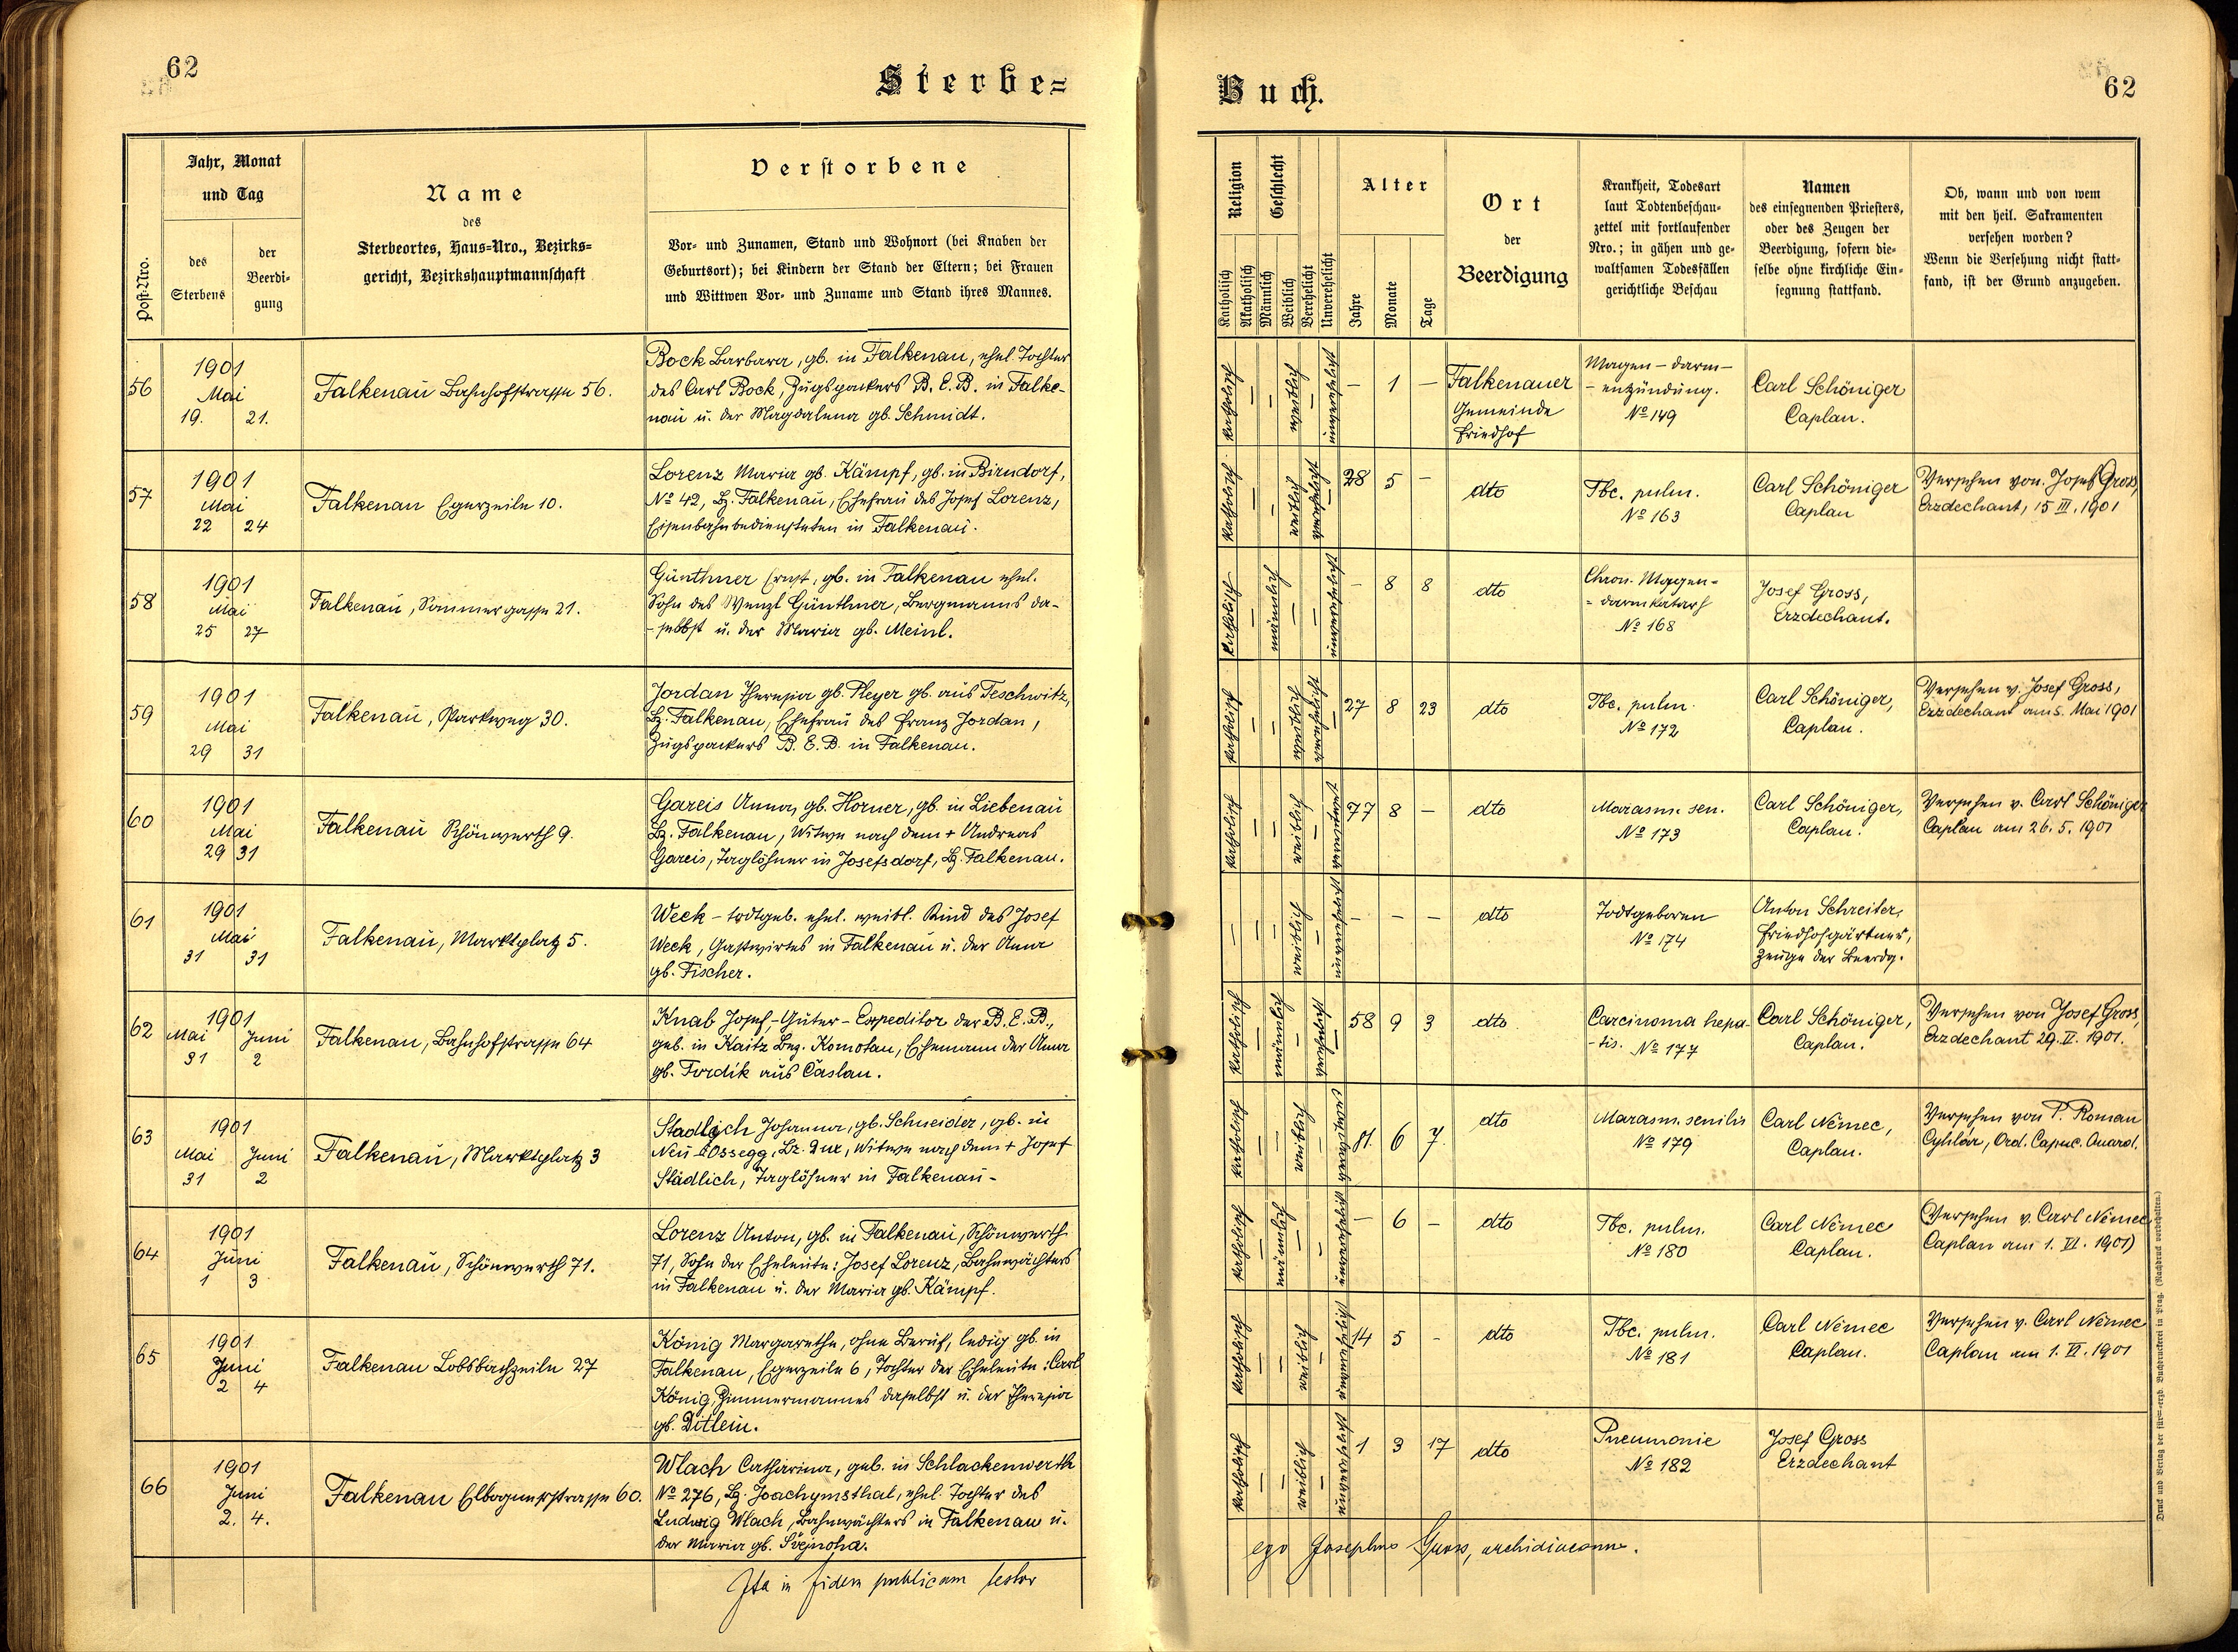 62
Sterbe=
Jahr, Monat
und Tag
Post-Nro.
des
Sterbens
der
Beerdi-
gung
Name
des
Sterbeortes, Haus-Nro., Bezirks-
gericht, Bezirkshauptmannschaft
Verstorbene
Vor- und Zunamen, Stand und Wohnort (bei Knaben der
Geburtsort); bei Kindern der Stand der Eltern; bei Frauen
und Wittwen Vor- und Zuname und Stand ihres Mannes.
56
1901
Mai
19. 21.
Falkenau Bahnhofstrasse 56.
Bock Barbara, gb. in Falkenau, ehel. Tochter
des Carl Bock, Zugspackers B. E. B. in Falke-
nau u. der Magdalena gb. Schmidt.
57
1901
Mai
22 24
Falkenau Egerzeile 10.
Lorenz Maria gb. Kämpf, gb. in Birndorf,
No 42, Bz. Falkenau, Ehefrau des Josef Lorenz,
Eisenbahnbediensteten in Falkenau.
58
1901
Mai
25 27
Falkenau, Sommergasse 21.
Günthner Ernst, gb. in Falkenau ehel.
Sohn des Wenzl Günthner, Bergmanns da-
-selbst u. der Maria gb. Meinl.
59
1901
Mai
29 31
Falkenau, Parkweg 30.
Jordan Theresia gb. Pleyer gb. aus Teschwitz,
Bz. Falkenau, Ehefrau des Franz Jordan,
Zugspackers B. E. B. in Falkenau.
60
1901
Mai
29 31
Falkenau Schönwerth 9.
Gareis Anna, gb. Horner, gb. in Liebenau
Bz. Falkenau, Witwe nach dem + Andreas
Gareis, Taglöhner in Josefsdorf, Bz. Falkenau.
61
1901
Mai
31 31
Falkenau, Marktplatz 5.
Weck - todtgeb. ehel. weibl. Kind des Josef
Weck, Gastwirtes in Falkenau u. der Anna
gb. Fischer.
62
1901
Mai Juni
31 2
Falkenau, Bahnhofstrasse 64
Knab Josef, - Güter - Expeditor der B. E. B.,
geb. in Kaitz Bez. Komotau, Ehemann der Anna
gb. Tvrdik aus Časlau.
63
1901
Mai Juni
31 2
Falkenau, Marktplatz 3
Stadlich Johanna, gb. Schneider, gb. in
Neu-Ossegg, Bz. Dux, Witwe nach dem + Josef
Städlich, Taglöhner in Falkenau-
64
1901
Juni
1 3
Falkenau, Schönwerth 71.
Lorenz Anton, gb. in Falkenau, Schönwerth
71, Sohn der Eheleute: Josef Lorenz, Bahnwächters
in Falkenau u. der Maria gb. Kämpf.
65
1901
Juni
2 4
Falkenau Lobsbachzeile 27
König Margarethe, ohne Beruf, ledig gb. in
Falkenau, Egerzeile 6, Tochter der Eheleute: Carl
König, Zimmermannes daselbst u. der Theresia
gb. Ditlein.
66
1901
Juni
2. 4.
Falkenau Elbognerstrasse 60.
Wlach Catharina, geb. in Schlackenwerth
No 276, Bz. Joachymsthal, ehel. Tochter des
Ludwig Wlach, Bahnwächters in Falkenau u.
der Maria gb. Švejnoha.
Ita in fidem publicam testor
Buch.
62
Religion
Geschlecht
Katholisch
Akatholisch
Männlich
Weiblich
Verehelicht
Unverehelicht
Alter
Jahre
Monate
Tage
Ort
der
Beerdigung
Krankheit, Todesart
laut Todtenbeschau-
zettel mit fortlaufender
Nro.; in gähen und ge-
waltsamen Todesfällen
gerichtliche Beschau
Namen
des einsegnenden Priesters,
oder des Zeugen der
Beerdigung, sofern die-
selbe ohne kirchliche Ein-
segnung stattfand.
Ob, wann und von wem
mit den heil. Sakramenten
versehen worden?
Wenn die Versehung nicht statt-
fand, ist der Grund anzugeben.
katholisch - - weiblich - unverehelicht
- 1 -
Falkenauer
Gemeinde
Friedhof
Magen - darm-
- entzündung.
No 149
Carl Schöniger
Caplan.
katholisch - - weiblich verehelicht -
28 5 -
dto
Tbc. pulm.
No 163
Carl Schöniger
Caplan
Versehen von Josef Gross,
Erzdechant, 15 III. 1901
katholisch - männlich - - unverehelicht
- 8 8
dto
Chron. Magen-
- darmkatarh
No 168
Josef Gross,
Erzdechant.
katholisch - - weiblich verehelicht -
27 8 23
dto
Tbc. pulm.
No 172
Carl Schöniger,
Caplan.
Versehen v. Josef Gross,
Erzdechant am 5. Mai 1901
katholisch - - weiblich - verwitwet
77 8 -
dto
Marasm. sen.
No 173
Carl Schöniger,
Caplan.
Versehen v. Carl Schöniger
Caplan am 26. 5. 1901
- - - weiblich - unverehelicht
- - -
dto
Todtgeboren
No 174
Anton Schreiter,
Friedhofgärtner,
Zeuge der Beerdg.
katholisch - männlich - verehelicht -
58 9 3
dto.
Carcinoma hepa-
-tis. No 177
Carl Schöniger,
Caplan.
Versehen von Josef Gross,
Erzdechant 29. V. 1901.
katholisch - - weiblich -
81. 6 7.
dto
Marasm. senilis
No 179
Carl Němec,
Caplan.
Versehen von P. Roman
Cyhlár, Ord. Capuc.
katholisch - männlich - - unverehelicht
- 6 -
dto
Tbc. pulm.
No 180
Carl Němec
Caplan.
(Versehen v. Carl Němec
Caplan am 1. VI. 1901)
katholisch - - weiblich - unverehelicht
14 5 -
dto
Tbc. pulm.
No 181
Carl Němec
Caplan.
Versehen v. Carl Němec
Caplan am 1. VI. 1901
katholisch - - weiblich - unverehelicht
1 3 17
dto
Pneumonie
No 182
Josef Gross
Erzdechant
ego Josephus Gross, archidiaconus.
Druck und Verlag der fürst-erzb. Buchdruckerei in Prag. (Nachdruck vorbehalten.)